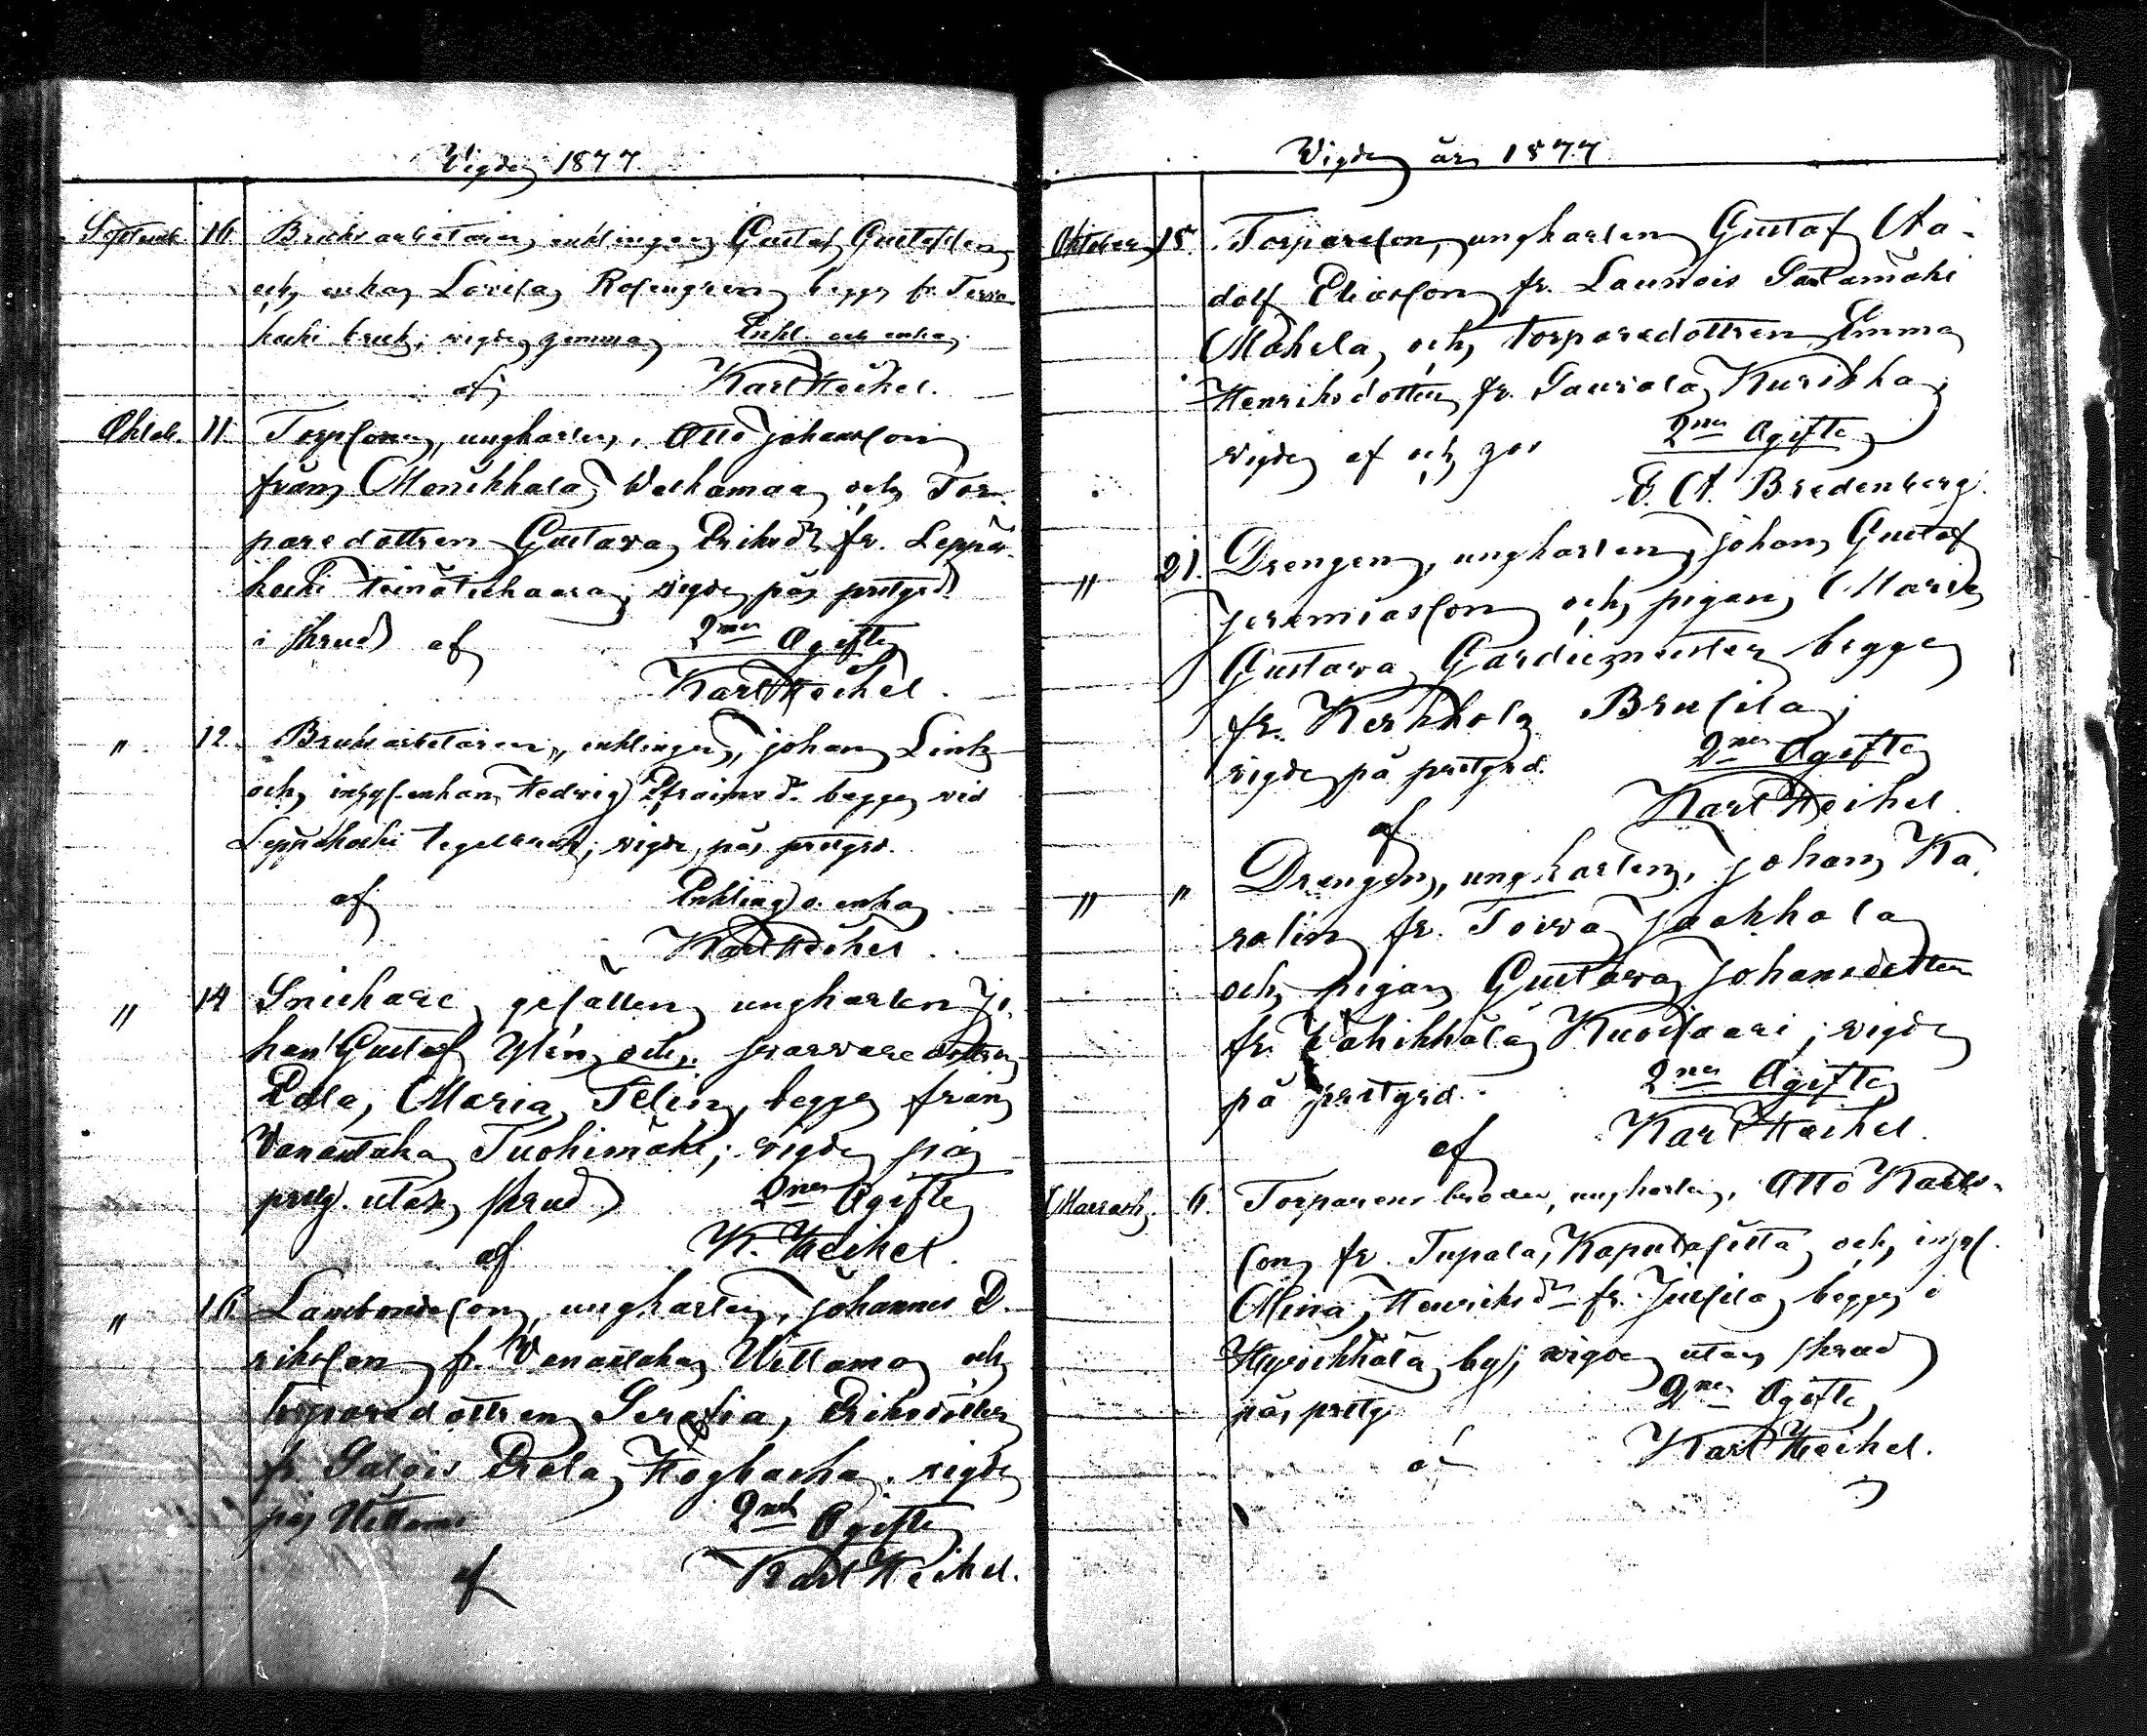 Vigde 1877.
Septemb. 16. Bruksarbetaren, enklingen Gustaf Gustafsson
och enkan Lovisa Rosengren begge fr. Terva
koski bruk; vigde hemma Enkl. och enka
af Karl Heikel.
Oktob. 11. Torpson, ungkarlen, Otto Johansson
från Monikkala Uskamaa och Tor-
paredottren Gustava Eriksdr fr. Leppä-
koski vigde på prstgrd
i skrud af 2ne Ogifte
Karl Heikel.
" 12. Bruksarbetaren, enklingen, Johan Link
och enkan Hedvig Efraimsdr begge vid
Leppäkoski tegelbruk; vigde på prstgrd.
af Enkling o. enka
Karl Heikel.
" 14 Snickare gesällen ungkarlen Jo-
han Gustaf Ylén och garvaredottren
Edla Maria Telin, begge från
Vanantaka Tuohimäki; vigde på
prstg. utan skrud 2ne Ogifte
af K. Heikel.
" Landbondeson, ungkarlen, Johannes E-
riksson fr. Vanantaka Uittamo och
torparedottren Serafia Eriksdotter
fr. Salois Erola vigde
på Uittamo 2ne Ogifte
af Karl Heikel.
Vigde år 1877
Oktober 15. Torpareson, ungkarlen Gustaf Aa-
dolf Eliasson fr. Launois
Mäkelä och torparedottren Emma
Henriksdotter fr. Saurala
vigde af och hos 2ne Ogifte
F. A. Bredenberg.
" 21. Drengen, ungkarlen, Johan Gustaf
Jeremiasson och pigan Maria
Gustava begge
fr. Kerkkola Brusila;
vigde på prstgrd. 2ne Ogifte
af Karl Heikel.
" " Drengen, ungkarlen, Johan Ka-
rolin fr. Toiva Jaakkola
och pigan Gustava Johansdotter
fr. Vähikkälä Kuosaari; vigde
på prstgrd. 2ne Ogifte
af Karl Heikel.
6. Torparens broder, ungkarlen, Otto Karls-
son fr. Tupala, och
Mina Henriksdr fr. Jussila begge i
Hyvikkälä by; vigde utan skrud
på prstg. 2ne Ogifte
af Karl Heikel.